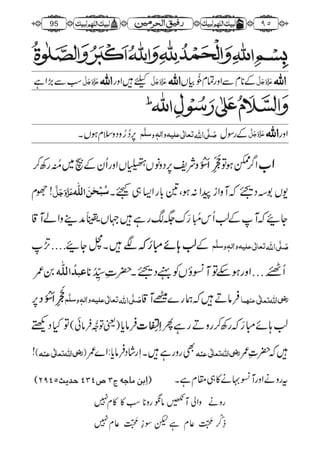 95 لبیک اللھم لبیک رفیق الحرمین لبیک اللھم لبیک ۹۵
بِسْمِ اللهِ وَالْحَمْدُ لِلّٰهِ وَاللهُ اَكْبَرُ وَالصَّلٰوةُ
اللہ عَزَّوَجَلَّ کے نام سے اور تمام خوبیاں اللہ عَزَّوَجَلَّ کیلئے ہیں اور اللہ عَزَّوَجَلَّ سب سے بڑا ہے
وَالسَّلَامُ عَلٰى رَسُوْلِ اللهِ ط
اور اللہ عَزَّوَجَلَّ کے رسول صلی اللہ تعالٰی علیہ والہ وسلم پر دُرُود و سلام ہوں۔
اب اگر ممکن ہو تو حَجَرِ اَسْوَد شریف پر دونوں ہتھیلیاں اور اُن کے بیچ میں مُنہ رکھ کر
یوں بوسہ دیجئے کہ آواز پیدا نہ ہو، تین بار ایسا ہی کیجئے۔ سُبْحٰنَ اللہ عَزَّوَجَلَّ! جھوم
جائیے کہ آپ کے لب اُس مُبارَک جگہ لگ رہے ہیں جہاں یقیناً مدینے والے آقا
صلی اللہ تعالٰی علیہ والہ وسلم کے لب ہائے مبارَکہ لگے ہیں۔ مچل جائیے.... تڑپ
اُٹھئے.... اور ہو سکے تو آنسوؤں کو بہنے دیجئے۔ حضرتِ سیِّدُنا عبداللہ بن عمر
رضی اللہ تعالٰی عنہما فرماتے ہیں کہ ہمارے میٹھے آقا صلی اللہ تعالٰی علیہ والہ وسلم حَجَرِ اَسْوَد پر
لب ہائے مبارَکہ رکھ کر روتے رہے پھر اِلتِفات فرمایا (یعنی توجُّہ فرمائی) تو کیا دیکھتے
ہیں کہ حضرتِ عمر رضی اللہ تعالٰی عنہ بھی رو رہے ہیں۔ ارشاد فرمایا: اے عمر (رضی اللہ تعالٰی عنہ)!
یہ رونے اور آنسو بہانے کا ہی مقام ہے۔ (ابن ماجہ ج۳ ص۴۳۴ حدیث۲۹۴۵)
رونے والی آنکھیں مانگو رونا سب کا کام نہیں
ذکرِ مَحبَّت عام ہے لیکن سوزِ مَحبَّت عام نہیں